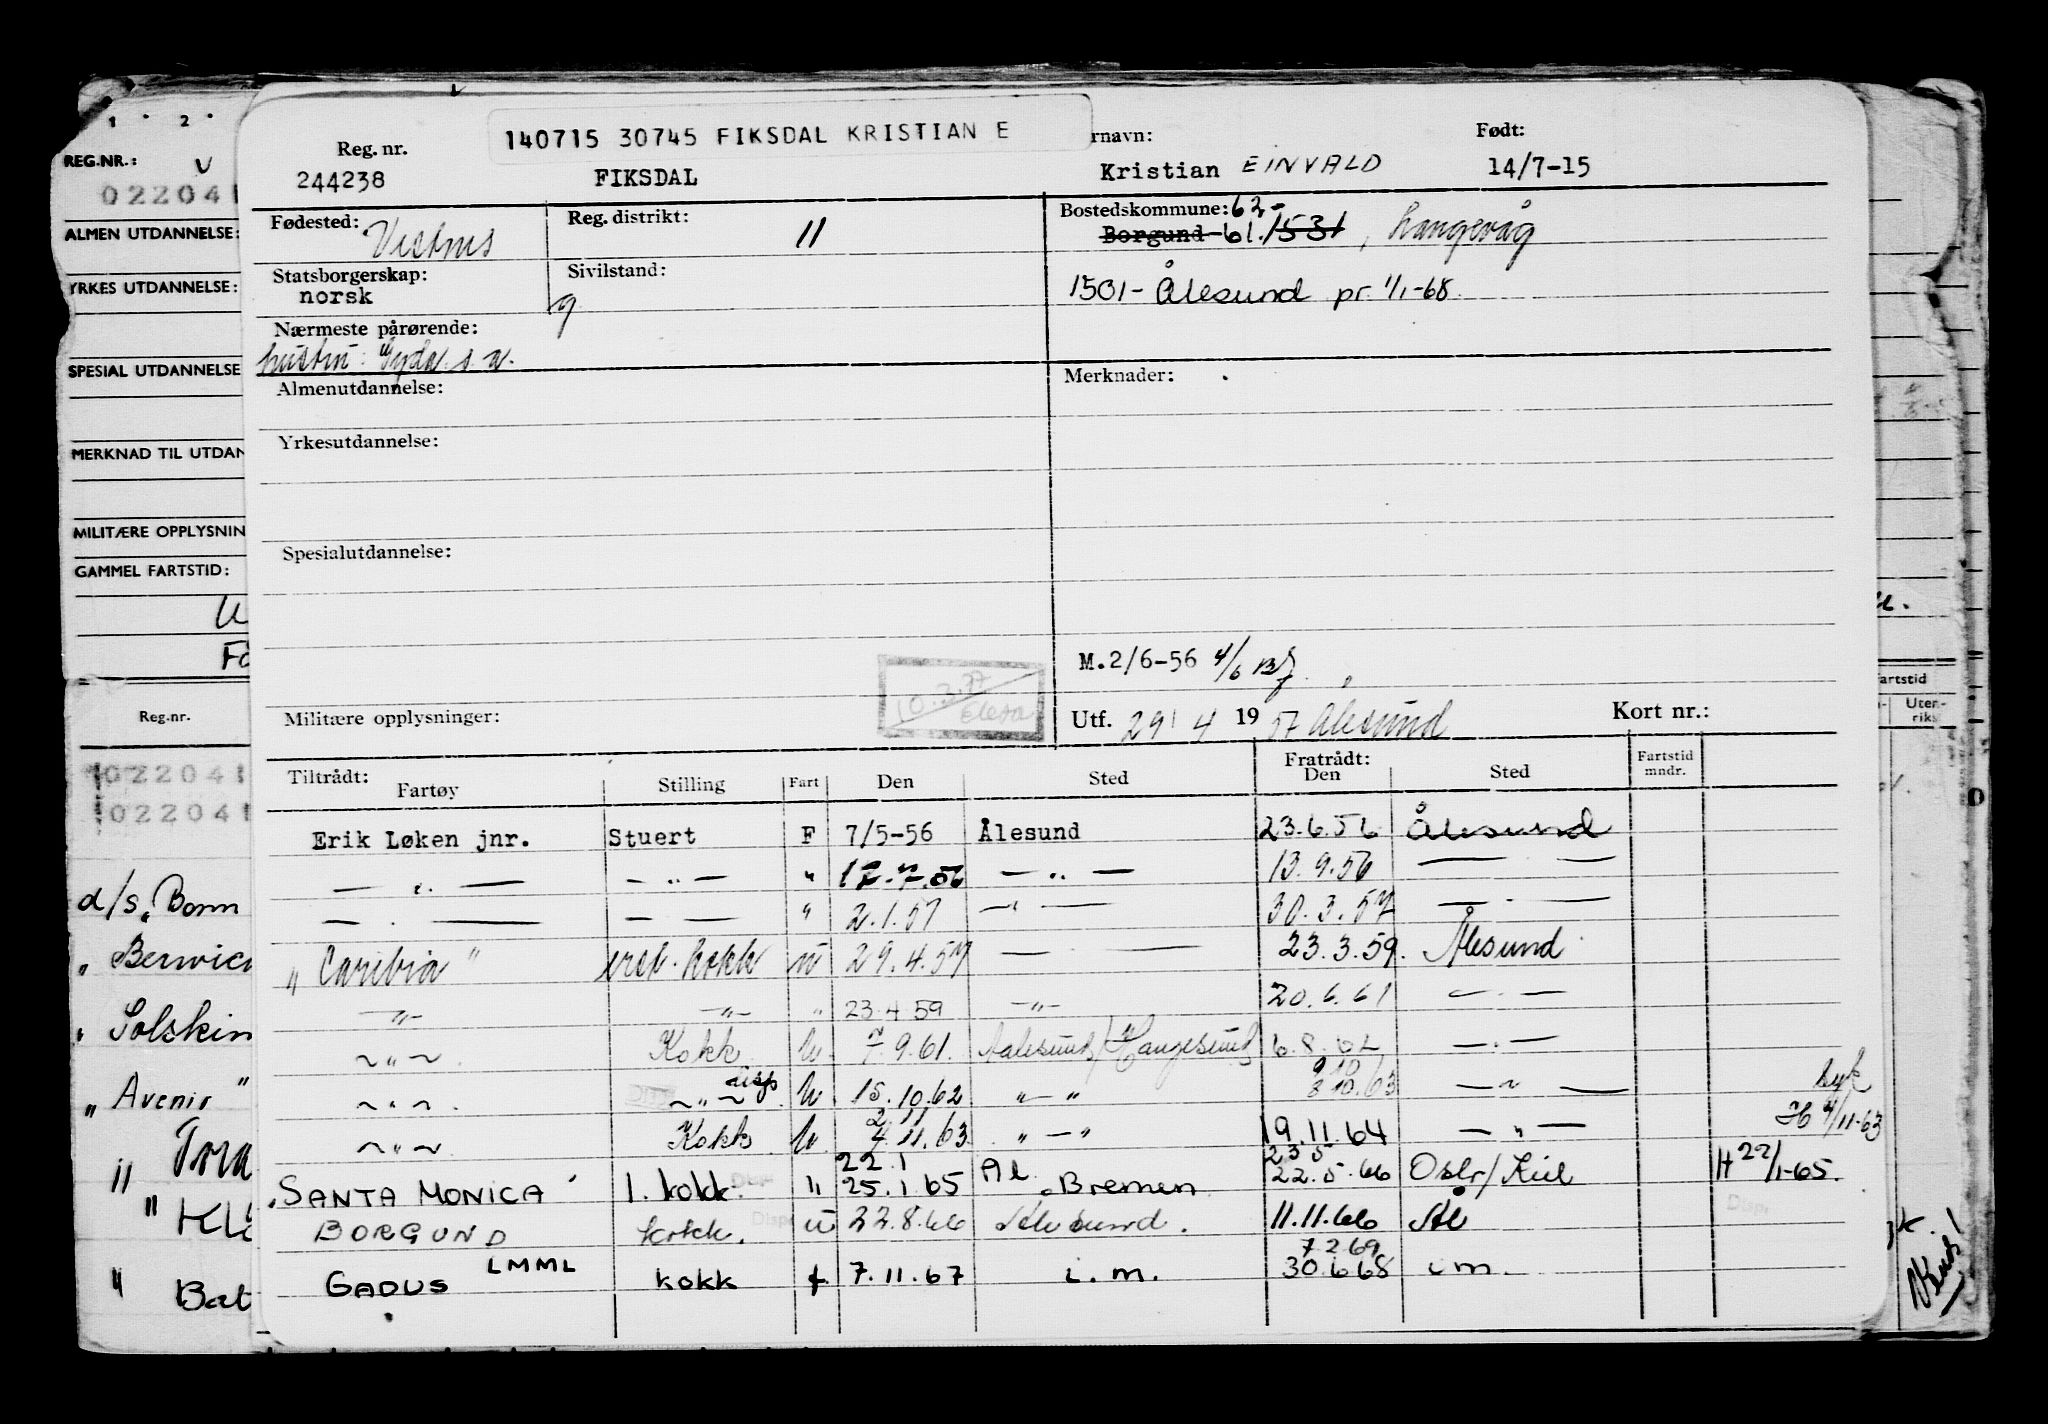 140715 30745 FIKSDAL KRISTIAN E
Reg. nr. rnavn: Født:
244238 FIKSDAL Kristian EINVALD 14/7-15
Fødested: Reg. distrikt: 11 Bostedskommune: 62-
Borgund-61.1531, Langevåg
Statsborgerskap: Sivilstand:
norsk g 1501- Ålesund pr. 1/1-68
Nærmeste pårørende:
hustru: s.a.
Almenutdannelse: Merknader:
Yrkesutdannelse:
Spesialutdannelse:
M.2/6-56 4/6
10.3.77
Militære opplysninger: Utf. 29/4 1957 Ålesund Kort nr.:
Tiltrådt: Fartøy Stilling Fart Den Sted Fratrådt: Den Sted Fartstid mndr.
Erik Løken jnr. Stuert F 7/5-56 Ålesund 23.6.56 Ålesund
— " — — " — " 17.7.56 — " — 13.9.56 — " —
— " — — " — " 2.1.57 — " — 30.3.57 — " —
" Caribia " kokk u 29.4.57 — " — 23.3.59. Ålesund
— " — — " — " 23.4.59 — " — 20.6.61 — " —
~ " ~ Kokk u. 7.9.61. Aalesund/Haugesund 6.8.62 — " —
~ " ~ ~ " ~ disp u. 15.10.62 " — " 9 10
8.10.63 — " — Lyk
~ " ~ Kokk u. 2 11
4.11.63 " — " 19.11.64 — " — H 4/11-63
"SANTA MONICA" 1. kokk " 22.1
25.1.65 Ål. Bremen 23 5
22.5.66 Oslo/Kiel H 22/1-65.
BORGUND kokk. u 22.8.66 Ålesund. 11.11.66 Ål
GADUS LMML kokk f 7.11.67 i.m. 7.2.69
30.6.68 i m.
1 · 2 ·
REG.NR.: v
022041
ALMEN UTDANNELSE:
YRKES UTDANNELSE:
SPESIAL UTDANNELSE
MERKNAD TIL UTDAN
MILITÆRE OPPLYSNIN
GAMMEL FARTSTID:
Reg.nr.
022041
022041
d/s "Bom
" Berwic
" Solskin
" Avenir "
"
" KL
" Bat
artstid
Uten-
riks